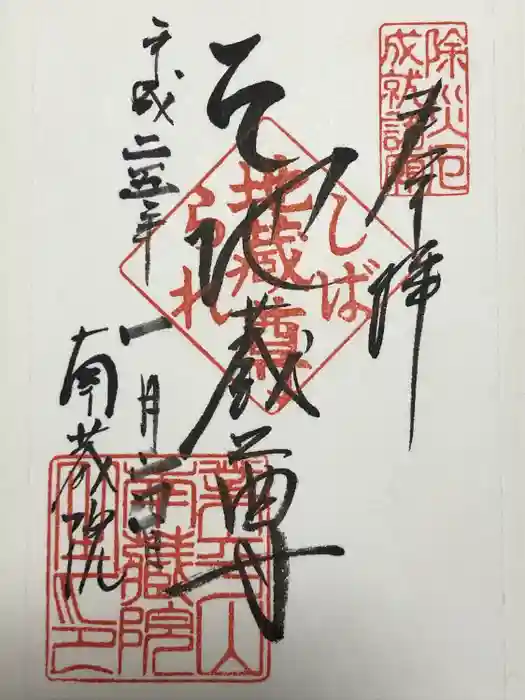 除災厄
成就諸願
奉拝
しばられ
地蔵尊
地蔵尊
平成二五年
一月
南蔵院
南蔵院